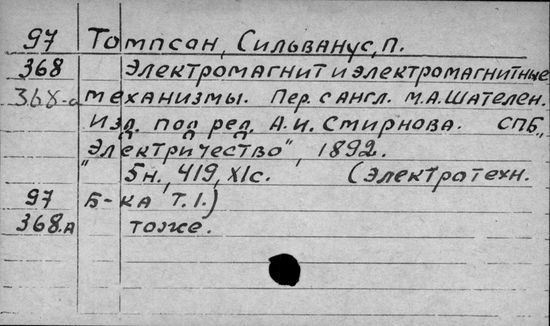 97 Томпсан, Сильванус, П.
368 Электромагнит и электромагнитные
368-а механизмы. Пер. с англ. М.А. Шателен.
Изд. под ред. А.И. Смирнова. СПБ.,
"Электричество", 1892.
5н., 419, XIс. (Электротехн.
97 Б-ка Т.1.)
368.А тоже.